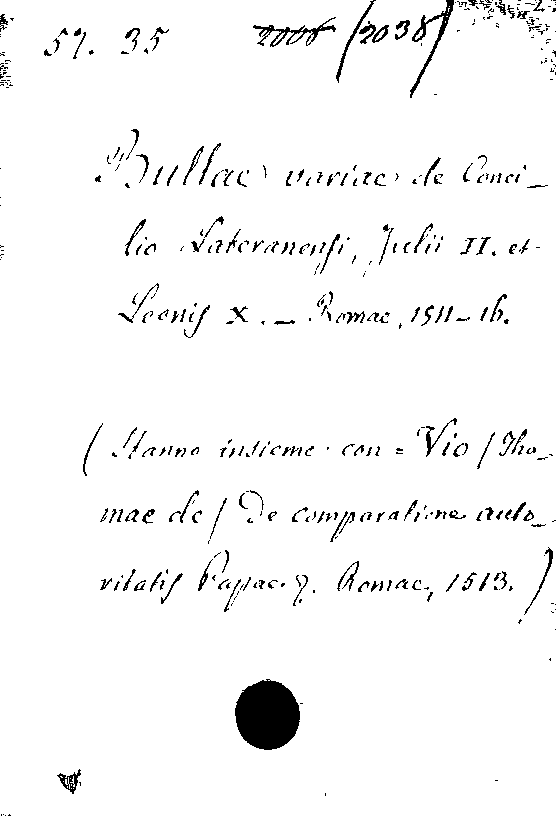 57. 35 2006 (2038)
Bullae variae de Conci_
lio Lateranensi, Julii II. et
Leonis X. _ Romae, 1511_16.
( Stanno insieme con = Vio / Tho_
mae de / De comparatione auto_
ritatis Papae &. Romae, 1513. )